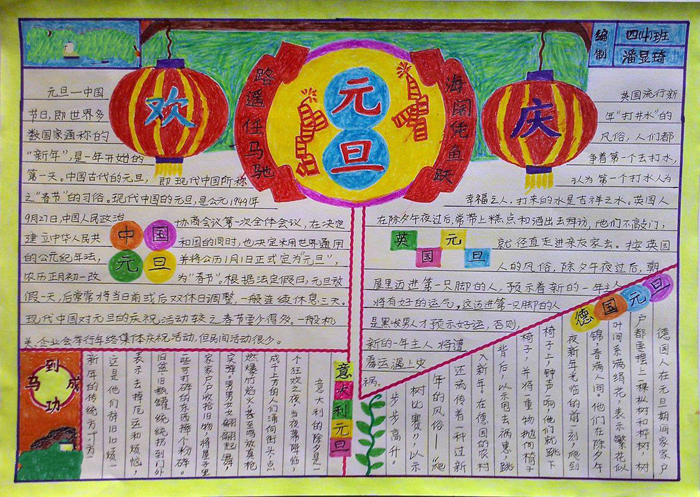 编制
四(11)班
潘昱琦
欢
庆
元
旦
路遥任马驰
海阔凭鱼跃
元旦—中国
节日,即世界多
数国家通称的
"新年",是一年开始的
第一天。中国古代的元旦,
即现代中国所称
之"春节"的习俗。现代中国的元旦,是公元1949年
9月27日,中国人民政治
协商会议第一次全体会议,在决定
建立中华人民共
和国的同时,也决定采用世界通用
的公元纪年法,
并将公历1月1日正式定为"元旦",
农历正月初一改
为"春节"。根据法定假日,元旦放
假一天,后常常将当日前或后双休日调整,一般连续休息三天。
现代中国对元旦的庆祝活动较之春节要少得多。一般机
关、企业会举行年终集体庆祝活动,但民间活动很少。
中国
元旦
英国流行新
年"打井水"的
风俗,人们都
争着第一个去打水,
认为第一个打水人为
幸福之人,打来的水是吉祥之水,英国人
在除夕午夜过后,常带上糕点和酒出去拜访,他们不敲门,
就径直走进亲友家去。按英国
人的风俗,除夕午夜过后,朝
屋里迈进第一只脚的人,预示着新的一年主人
将有好的运气。这迈第一只脚的人
是黑发男人才预示好运,否则,
新的一年主人将遭
霉运遇上灾
祸。
英国元旦
德国元旦
德国人在元旦期间家家户
户都要摆上一棵枞树和桦树,树
叶间系满绢花,表示繁花似
锦,春满人间。他们在除夕午
夜新年光临前一刻,爬到
椅子上,钟声一响,他们就跳下
椅子,并将一重物抛向椅子
背后,以示甩去祸患,跳
入新年。在德国的农村
还流传着一种过新
年的风俗——"爬
树比赛",以示
步步高升。
意大利元旦
意大利的除夕是一
个狂欢之夜,当夜幕降临,
成千上万的人们涌向街头,点
燃爆竹焰火,甚至鸣放真枪
实弹,男男女女翩翩起舞,
家家户户收拾旧物,将屋子里
些可打碎的东西摔个粉碎。
旧盆旧瓶罐统统扔到门外
表示去掉厄运和烦恼,
这是他们辞旧旧烦一
新年的传统方十方一
马到成功